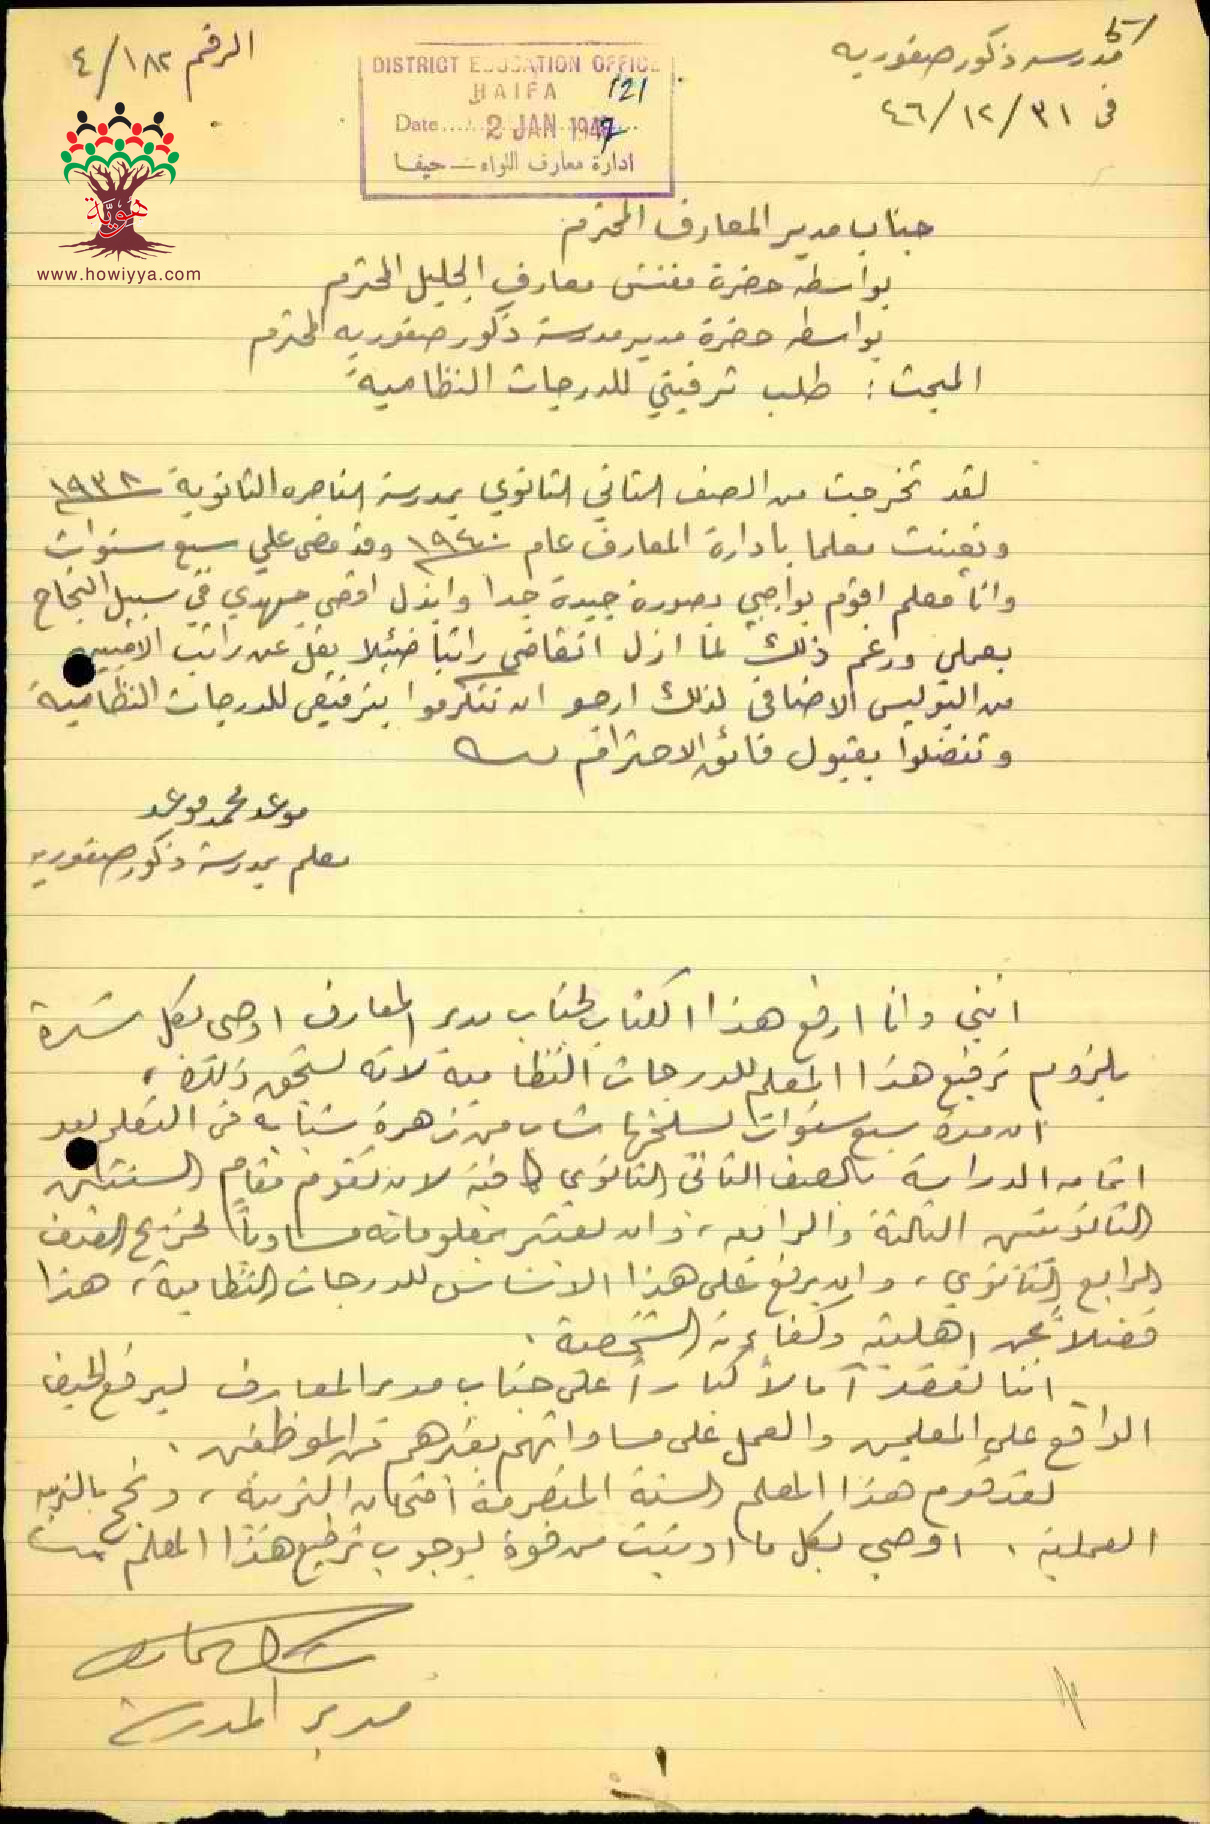 مدرسة ذكور صفوريه
في ٣١/١٢/٤٦
الرقم ١٨٢/٤
DISTRICT EDUCATION OFFICE
HAIFA
121
Date 2 JAN 1947
ادارة معارف اللواء – حيفا
هوية
www.howiyya.com
جناب مدير المعارف المحترم
بواسطة حضرة مفتش معارف الجليل المحترم
بواسطة حضرة مدير مدرسة ذكور صفوريه المحترم
المبحث : طلب ترفيعي للدرجات النظامية
لقد تخرجت من الصف الثاني الثانوي بمدرسة الناصره الثانوية ١٩٣٨
وتعينت معلما بادارة المعارف عام ١٩٤٠ وقد مضى علي سبع سنوات
وانا معلم اقوم بواجبي بصورة جيدة جدا وابذل اقصى جهدي في سبيل النجاح
بعملي ورغم ذلك لما ازل اتقاضى راتبا ضئيلا يقل عن راتب
من البوليس الاضافي لذلك ارجو ان تتكرموا بترفيعي للدرجات النظامية
وتفضلوا بقبول فائق الاحترام
موعد محمد موعد
معلم بمدرسة ذكور صفوريه
انني وانا ارفع هذا الكتاب لجناب مدير المعارف اوصي بكل شدة
بلزوم ترفيع هذا المعلم للدرجات النظامية لانه يستحق ذلك ،
ان مدة سبع سنوات يسلخها شاب من زهرة شبابه في التعليم بعد
اتمامه الدراسة بالصف الثاني الثانوي كافية لان تقوم مقام السنتين
الثانويتين الثالثة والرابعة ، وان يعتبر بمعلوماته مساوياً لخريج الصف
الرابع الثانوي ، وان يرفع على هذا الاساس للدرجات النظامية ، هذا
فضلاً عن اهليته وكفاءته الشخصية .
اننا نعقد آمالاً كباراً على جناب مدير المعارف ليرفع الحيف
الواقع على المعلمين والعمل على مساواتهم بغيرهم من الموظفين .
لقد قدم هذا المعلم السنة المنصرمة امتحان التربية ، ونجح بالتربية
العملية . اوصي بكل ما اوتيت من قوة بوجوب ترفيع هذا المعلم
مدير المدرسة
١